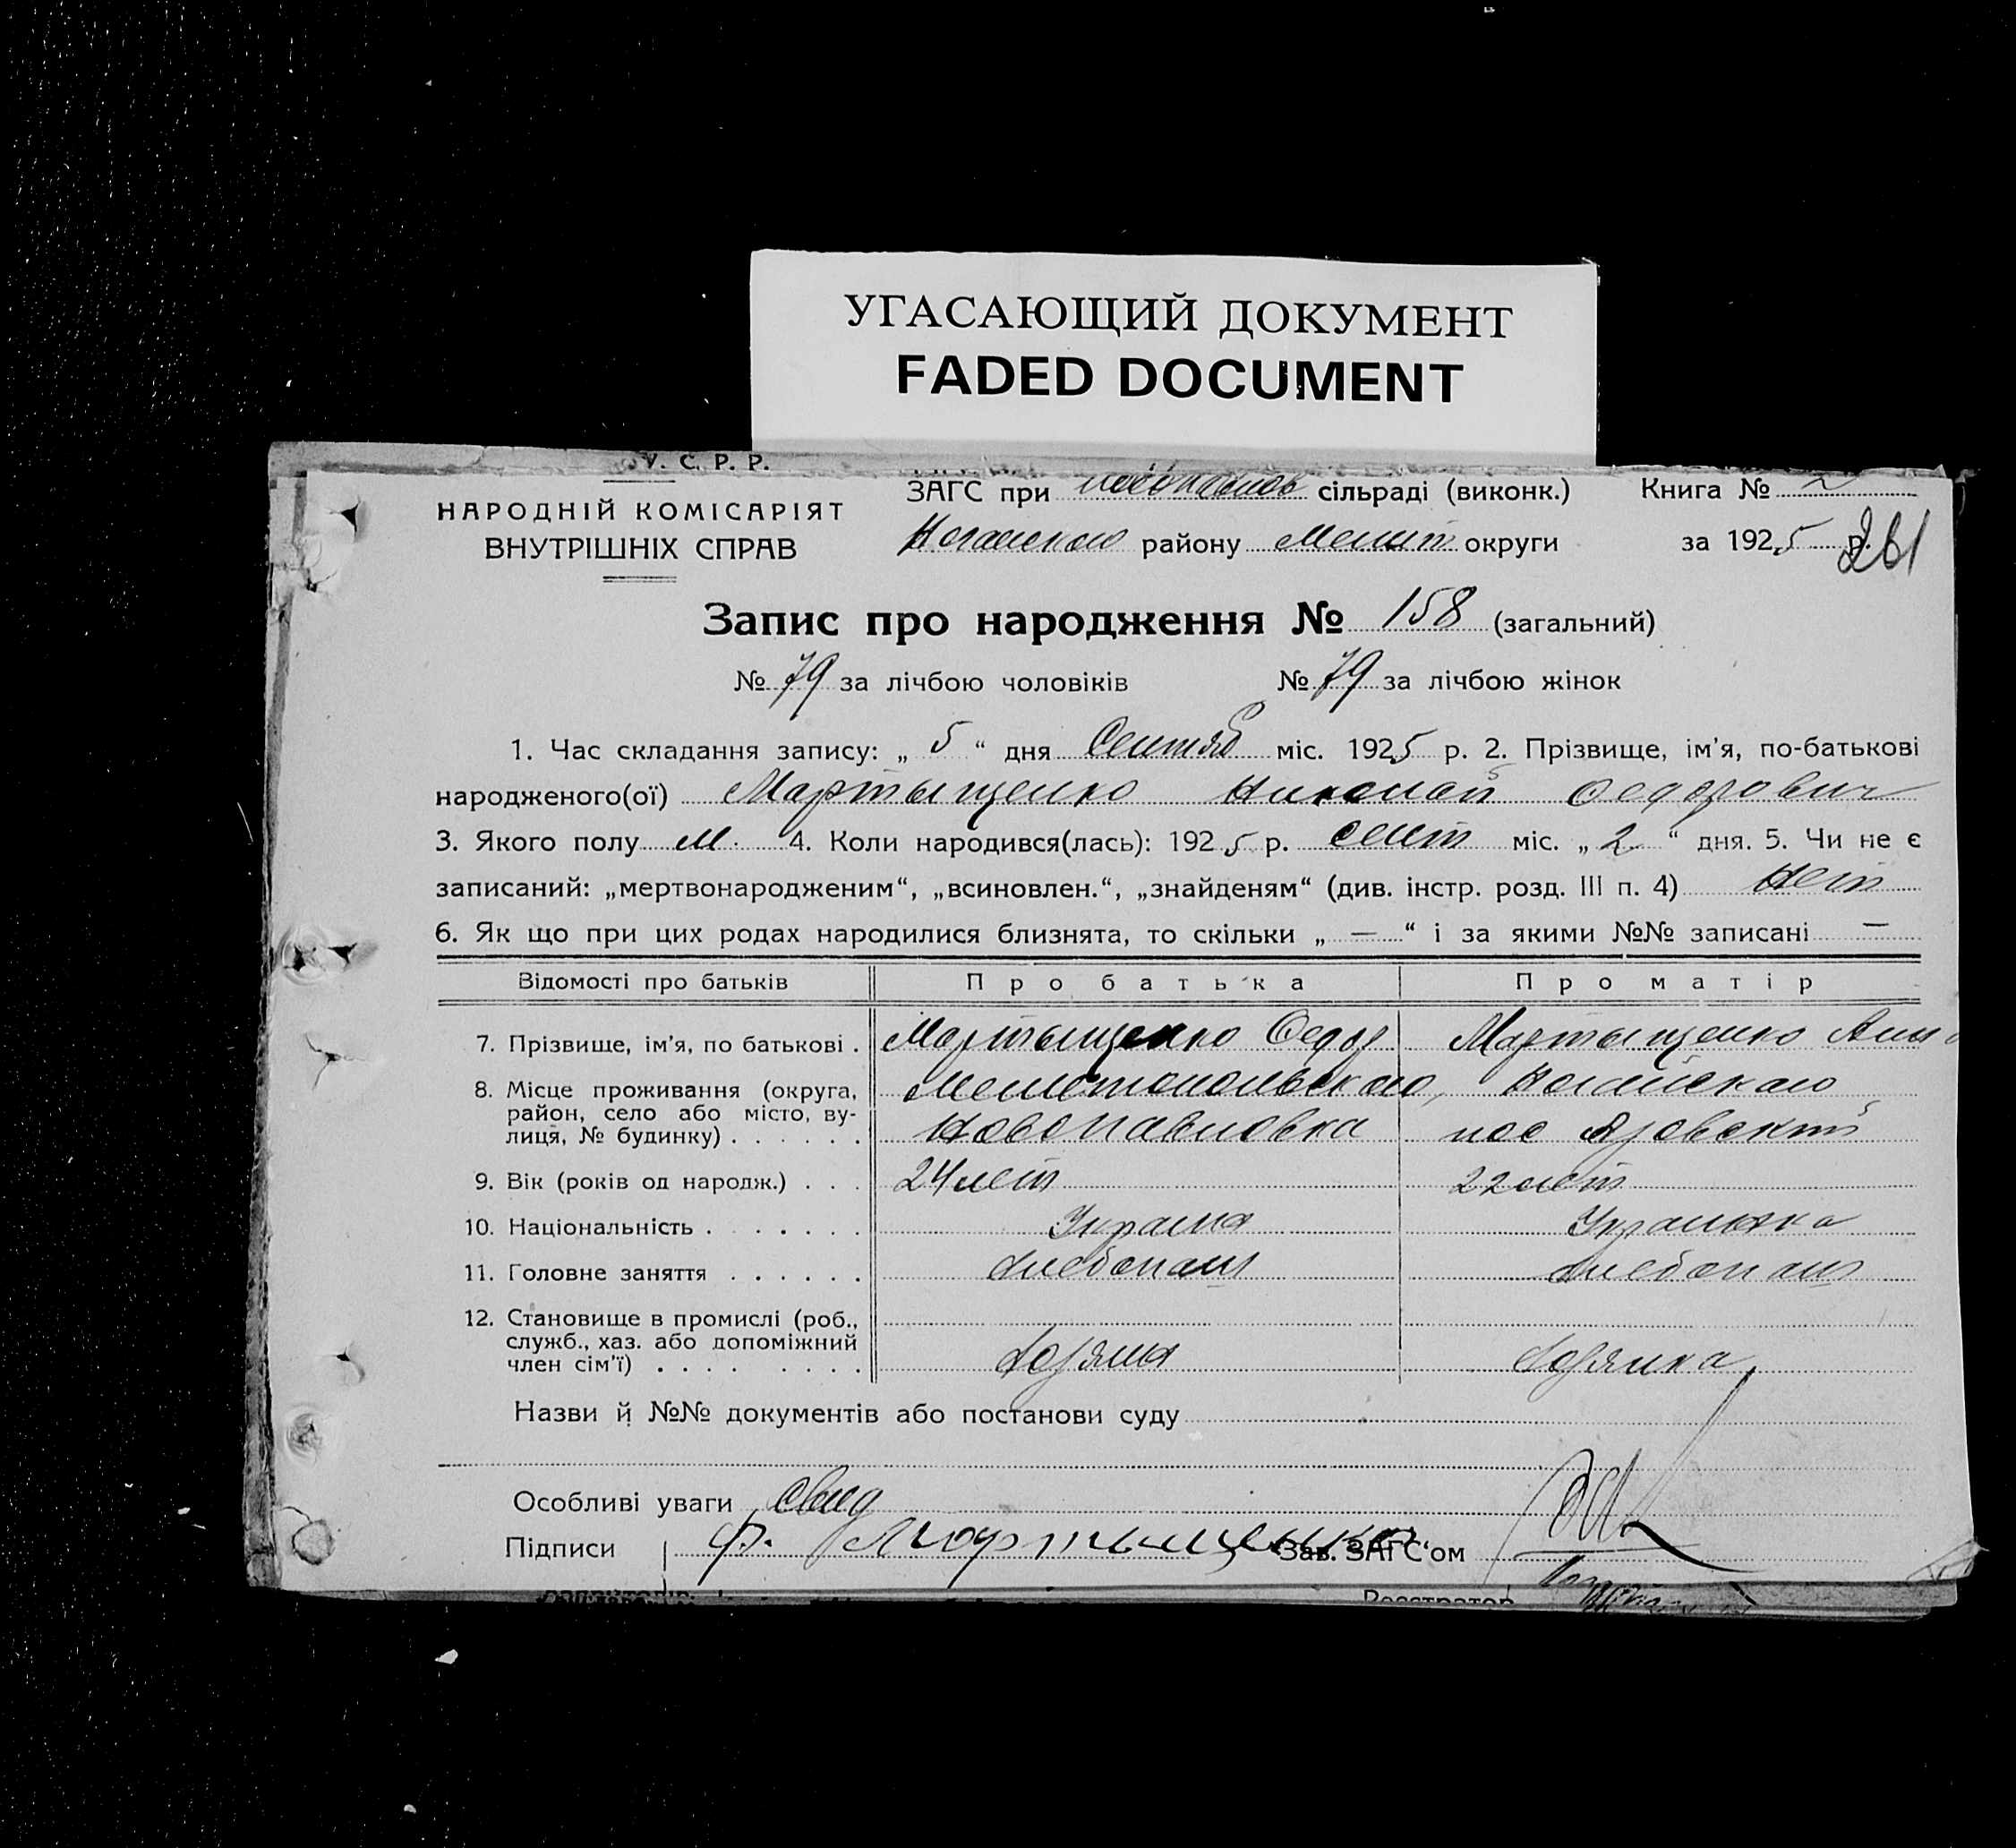 УГАСАЮЩИЙ ДОКУМЕНТ
FADED DOCUMENT
У. С. Р. Р.
НАРОДНІЙ КОМІСАРІЯТ
ВНУТРІШНІХ СПРАВ
ЗАГС при сільраді (виконк.) Книга № 2
Ногайского району Мелит округи за 1925 р.
261
Запис про народження № 158 (загальний)
№ 79 за лічбою чоловіків № 79 за лічбою жінок
1. Час складання запису: „ 5 “ дня Сентяб міс. 1925 р. 2. Прізвище, ім'я, по-батькові
народженого(ої) Мартыщенко Николай Федорович
3. Якого полу М. 4. Коли народився(лась): 1925 р. сент міс. „ 2 “ дня. 5. Чи не є
записаний: „мертвонародженим“, „всиновлен.“, „знайденям“ (див. інстр. розд. III п. 4) Нет
6. Як що при цих родах народилися близнята, то скільки „ — “ і за якими №№ записані —
Відомості про батьків Про батька Про матір
7. Прізвище, ім'я, по батькові . Мартыщенко Федор Мартыщенко Анна
8. Місце проживання (округа, Мелитопольского, Ногайского
район, село або місто, ву-
лиця, № будинку) . . . . . . Новопавловка пос Яровский
9. Вік (років од народж.) . . . 24 лет 22 лет
10. Національність . . . . . . . Украин Украинка
11. Головне заняття . . . . . . Хлебопаш Хлебопаш
12. Становище в промислі (роб.,
служб., хаз. або допоміжний
член сім'ї) . . . . . . . . Хозяин Хозяйка
Назви й №№ документів або постанови суду
Особливі уваги Свид
Підписи Ф. Мартыщенко Зав. ЗАГС'ом
Реєстратор